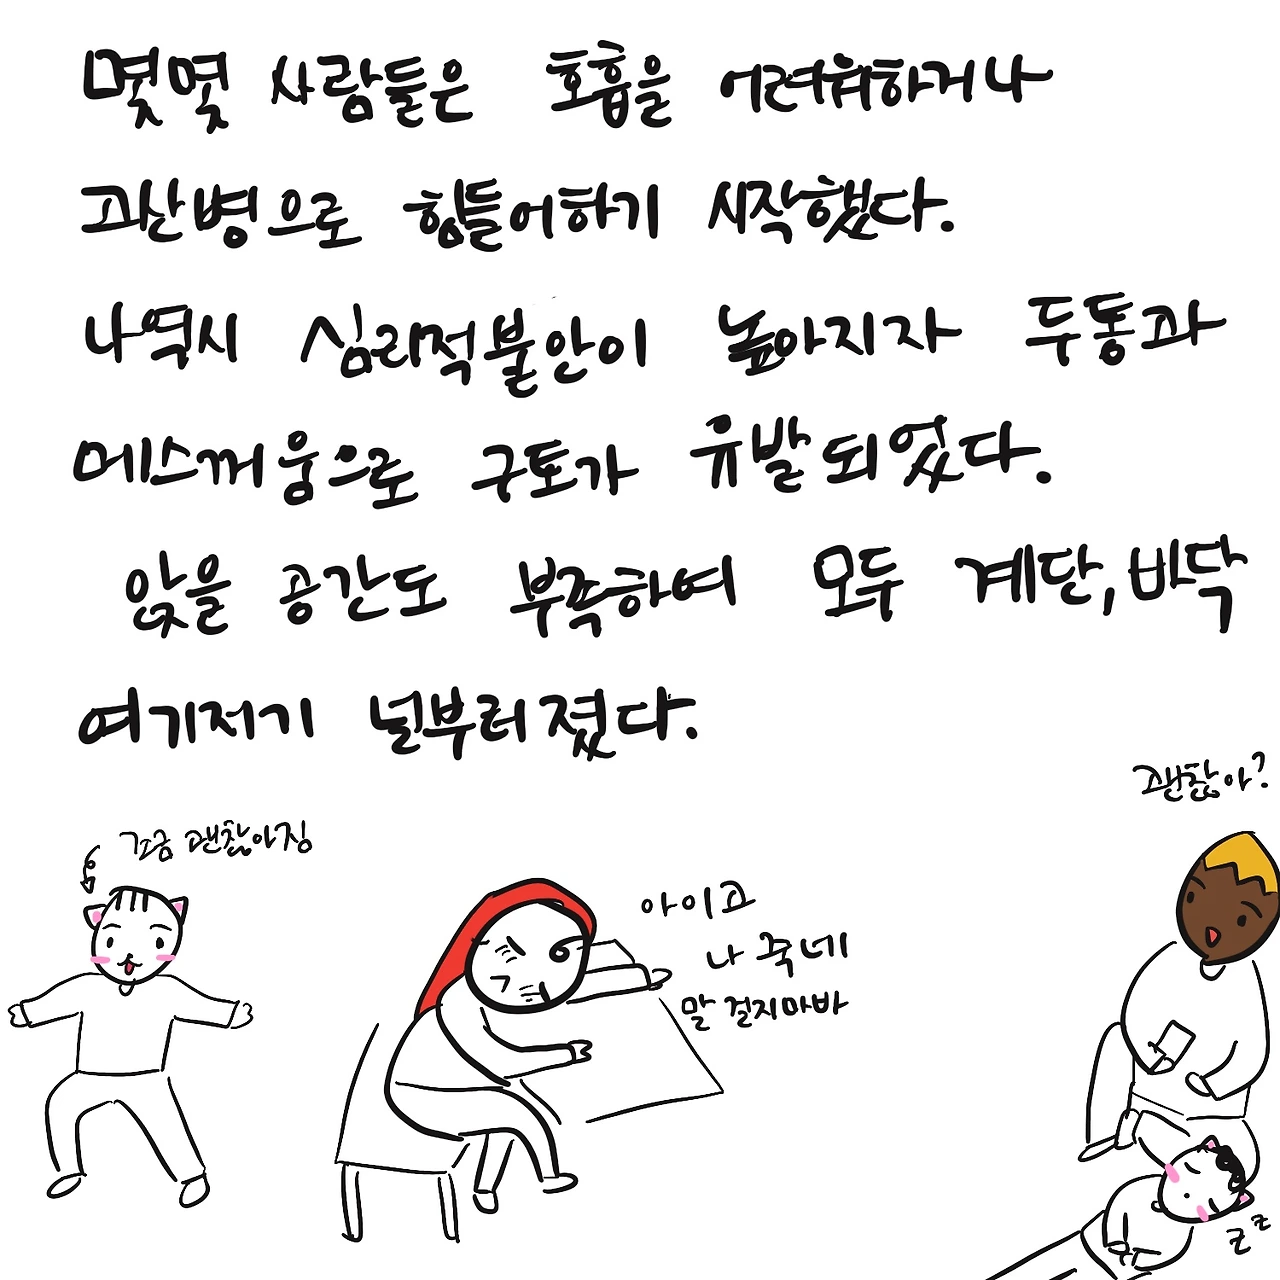 몇몇 사람들은 호흡을 어려워하거나
고산병으로 힘들어하기 시작했다.
나역시 심리적불안이 높아지자 두통과
메스꺼움으로 구토가 유발되었다.
앉을 공간도 부족하여 모두 계단, 바닥
여기저기 널부러졌다.
괜찮아?
조금 괜찮아짐
아이고
나 죽네
말 걸지마바
zz